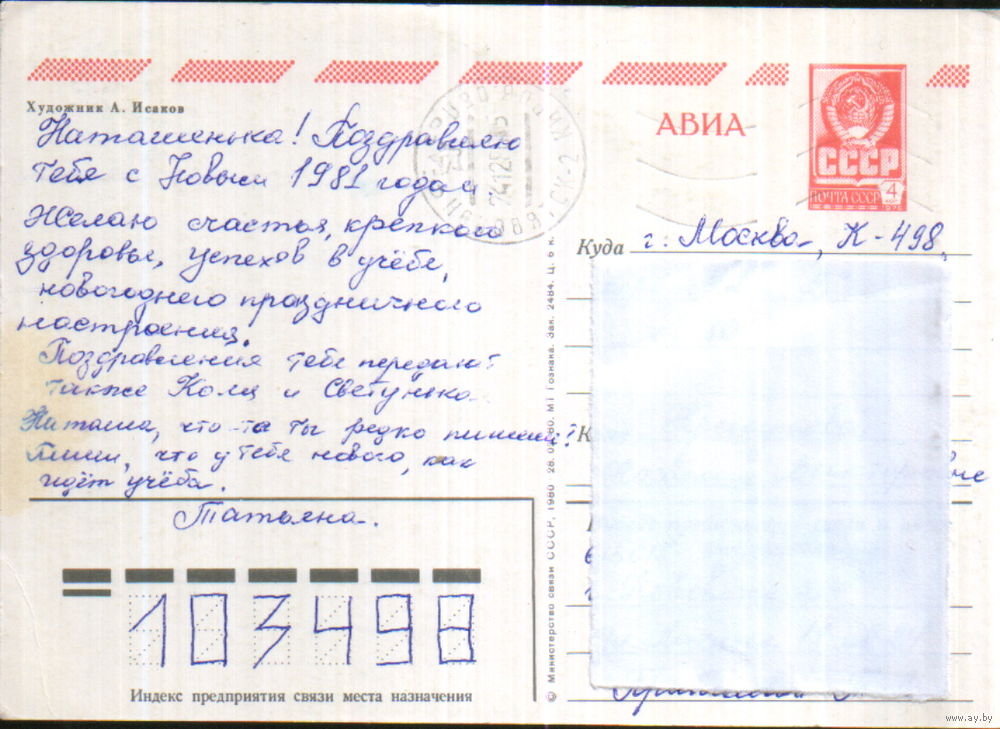 Художник А. Исаков
Наташенька! Поздравляю
тебя с Новым 1981 годом.
Желаю счастья, крепкого
здоровья, успехов в учёбе,
новогоднего праздничного
настроения.
Поздравления тебе передают
также Коля и Светунька.
Наташа, что-то ты редко пишешь?
Пиши, что у тебя нового, как
идёт учёба.
Татьяна.
103498
Индекс предприятия связи места назначения
© Министерство связи СССР, 1980
МТ Гознака. Зак. 2484. Ц. 6 к.
АВИА
СССР
ПОЧТА СССР 4
Куда г. Москва, К-498,
www.ay.by